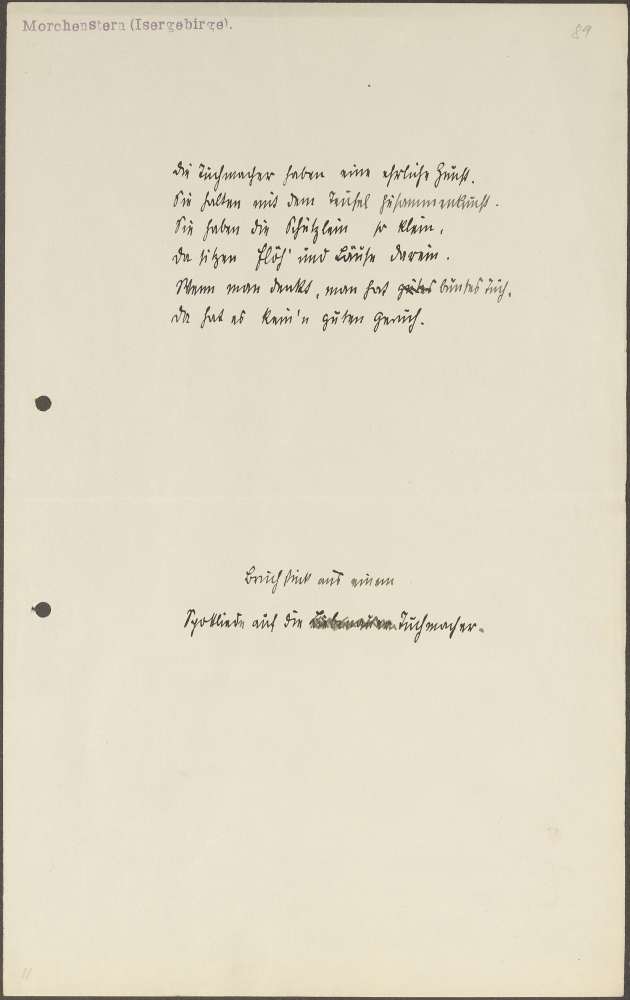 Morchenstern (Isergebirge).
89
Die Tuchmacher haben eine ehrliche Zunft.
Sie halten mit dem Teufel Zusammenkunft.
Sie haben die Schützlein so klein,
Da sitzen Flöh' und Läuse darein.
Wenn man denkt, man hat gutes buntes Tuch,
Da hat es kein'n guten Geruch.
Bruchstück aus einem
Spottliede auf die Liebenauer Tuchmacher.
11